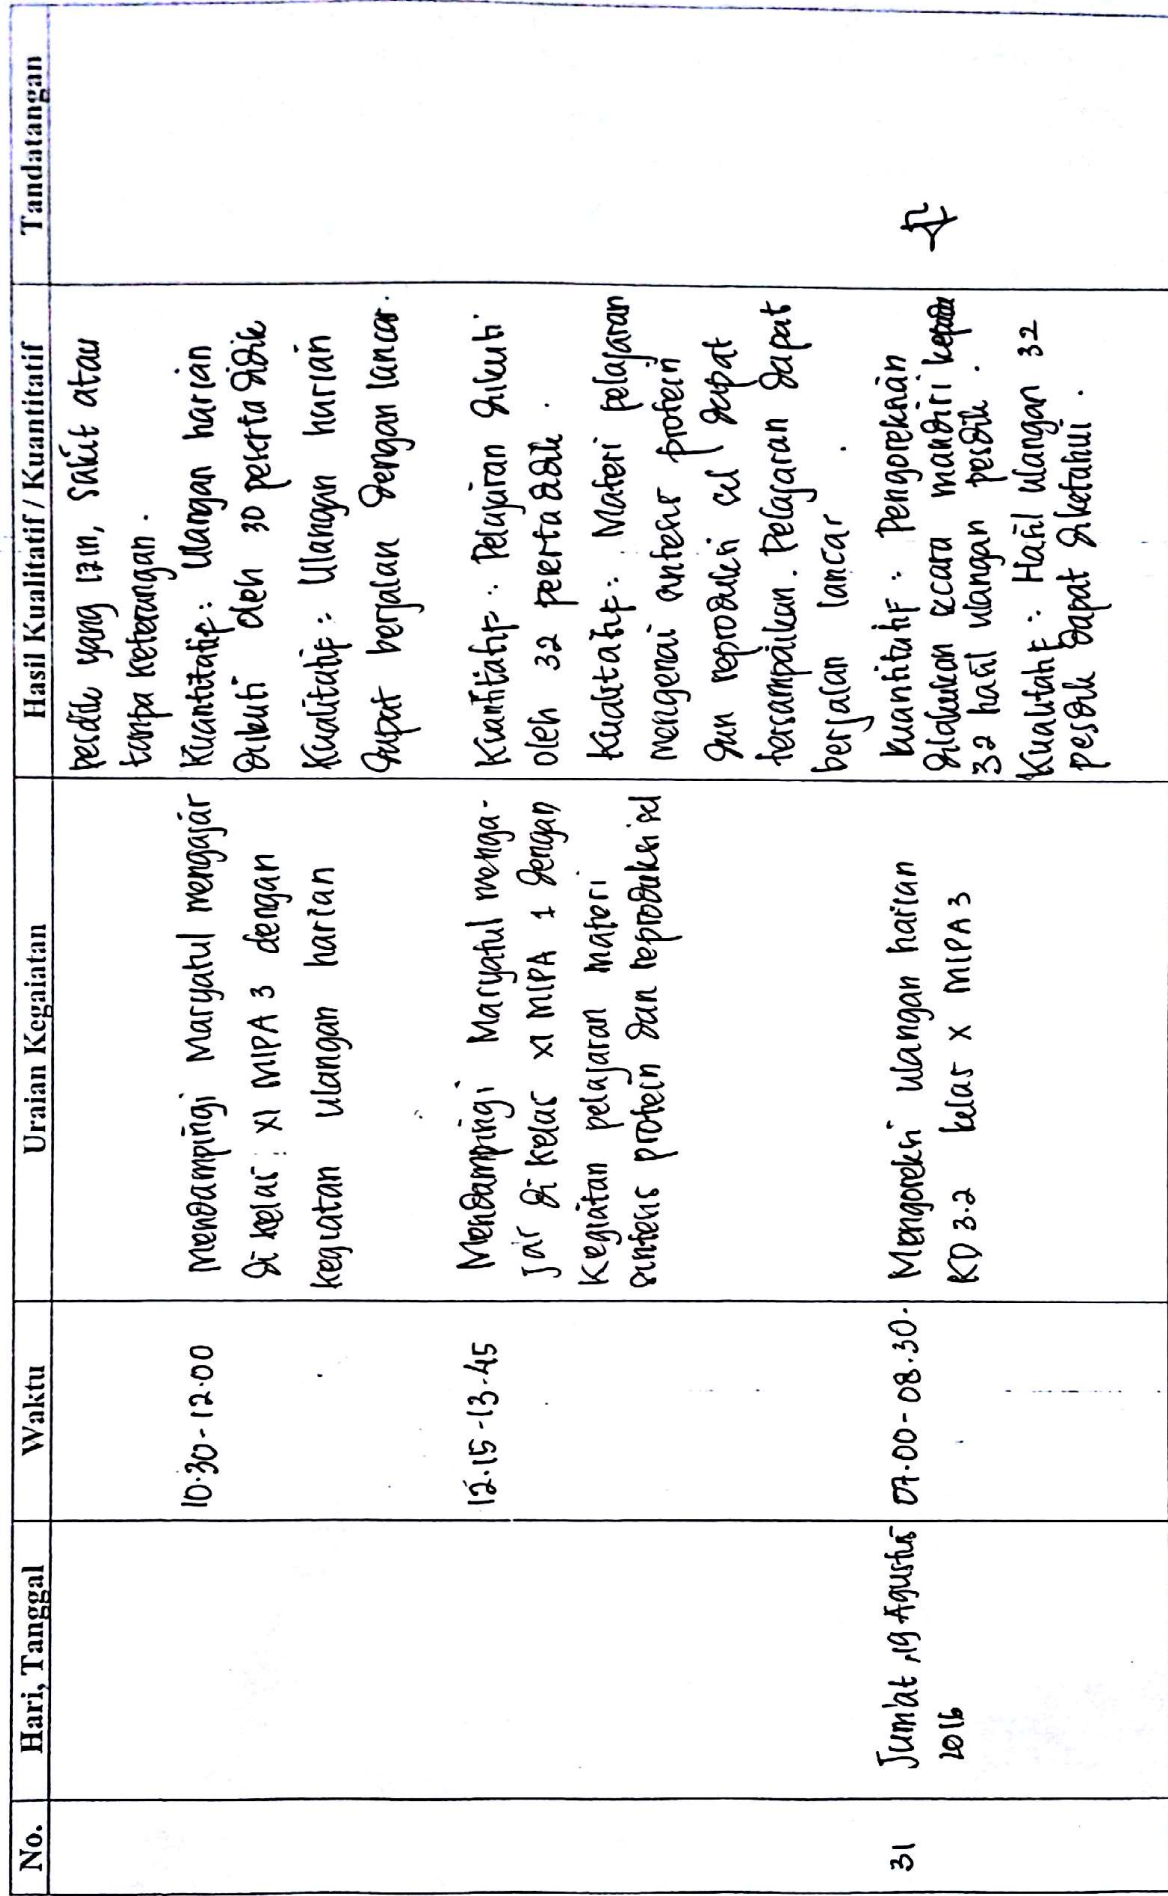 No. Hari, Tanggal Waktu Uraian Kegaiatan Hasil Kualitatif / Kuantitatif Tandatangan
pesdik yang izin, sakit atau
tanpa keterangan.
10.30 - 12.00
Mendampingi Maryatul mengajar
di kelas XI MIPA 3 dengan
kegiatan ulangan harian
Kuantitatif : Ulangan harian
diikuti oleh 30 peserta didik
Kualitatif : Ulangan harian
dapat berjalan dengan lancar.
12.15 - 13.45
Mendampingi Maryatul menga-
jar di kelas XI MIPA 1 dengan
Kegiatan pelajaran materi
sintesis protein dan reproduksi sel
Kuantitatif : Pelajaran diikuti
oleh 32 peserta didik.
Kualitatif : Materi pelajaran
mengenai sintesis protein
dan reproduksi sel dapat
tersampaikan. Pelajaran dapat
berjalan lancar.
31
Jumat, 19 Agustus
2016
07.00 - 08.30.
Mengoreksi ulangan harian
KD 3.2 kelas X MIPA 3
Kuantitatif : Pengoreksian
dilakukan secara mandiri kepada
32 hasil ulangan pesdik.
Kualitatif : Hasil ulangan 32
pesdik dapat diketahui.